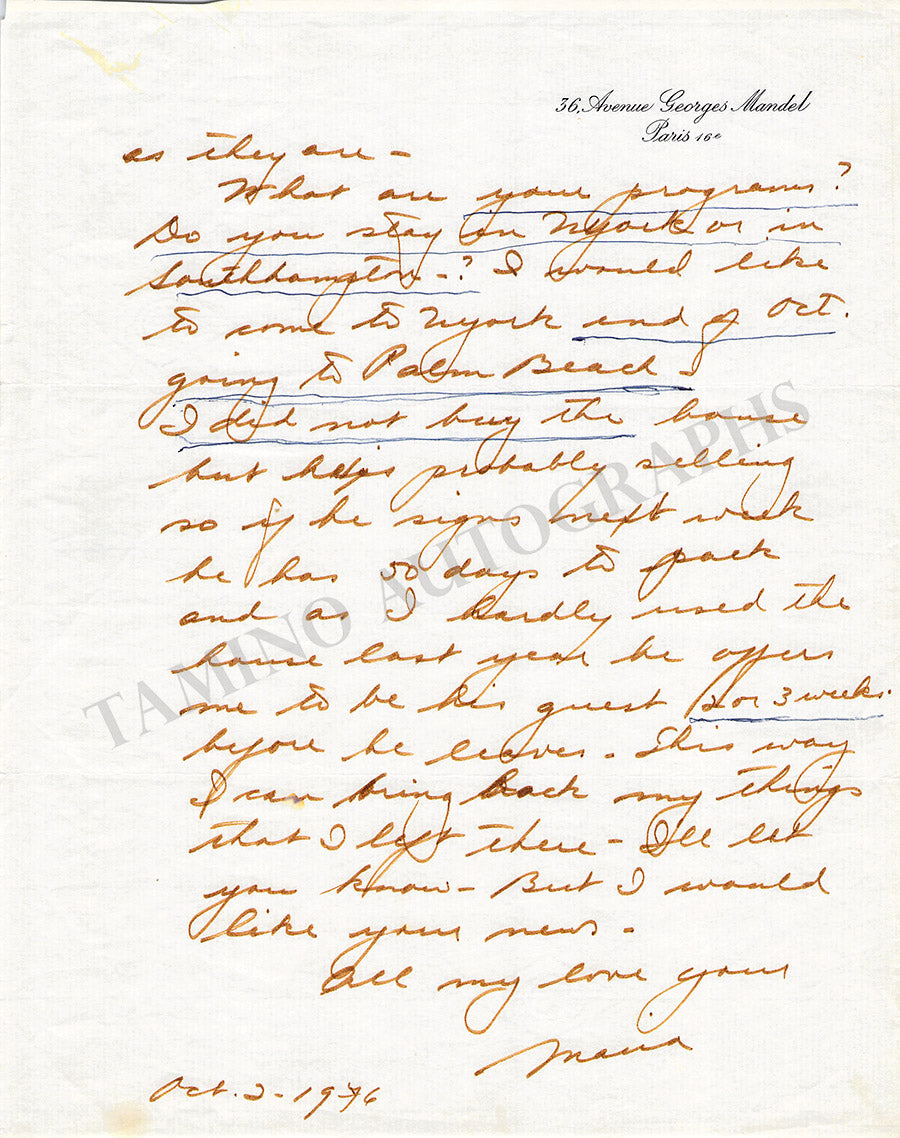 36, Avenue Georges Mandel
Paris 16e
as they are –
What are your programs?
Do you stay in NYork or in
Southhampton –? I would like
to come to NYork end of Oct.
going to Palm Beach –
I did not buy the house
but he is probably selling
so if he signs next week
he has 50 days to pack
and as I hardly used the
house last year he offers
me to be his guest 2 or 3 weeks.
before he leaves – This way
I can bring back my things
that I left there – I'll let
you know – But I would
like your news –
All my love your
Maria
Oct. 2 – 1976
TAMINO AUTOGRAPHS